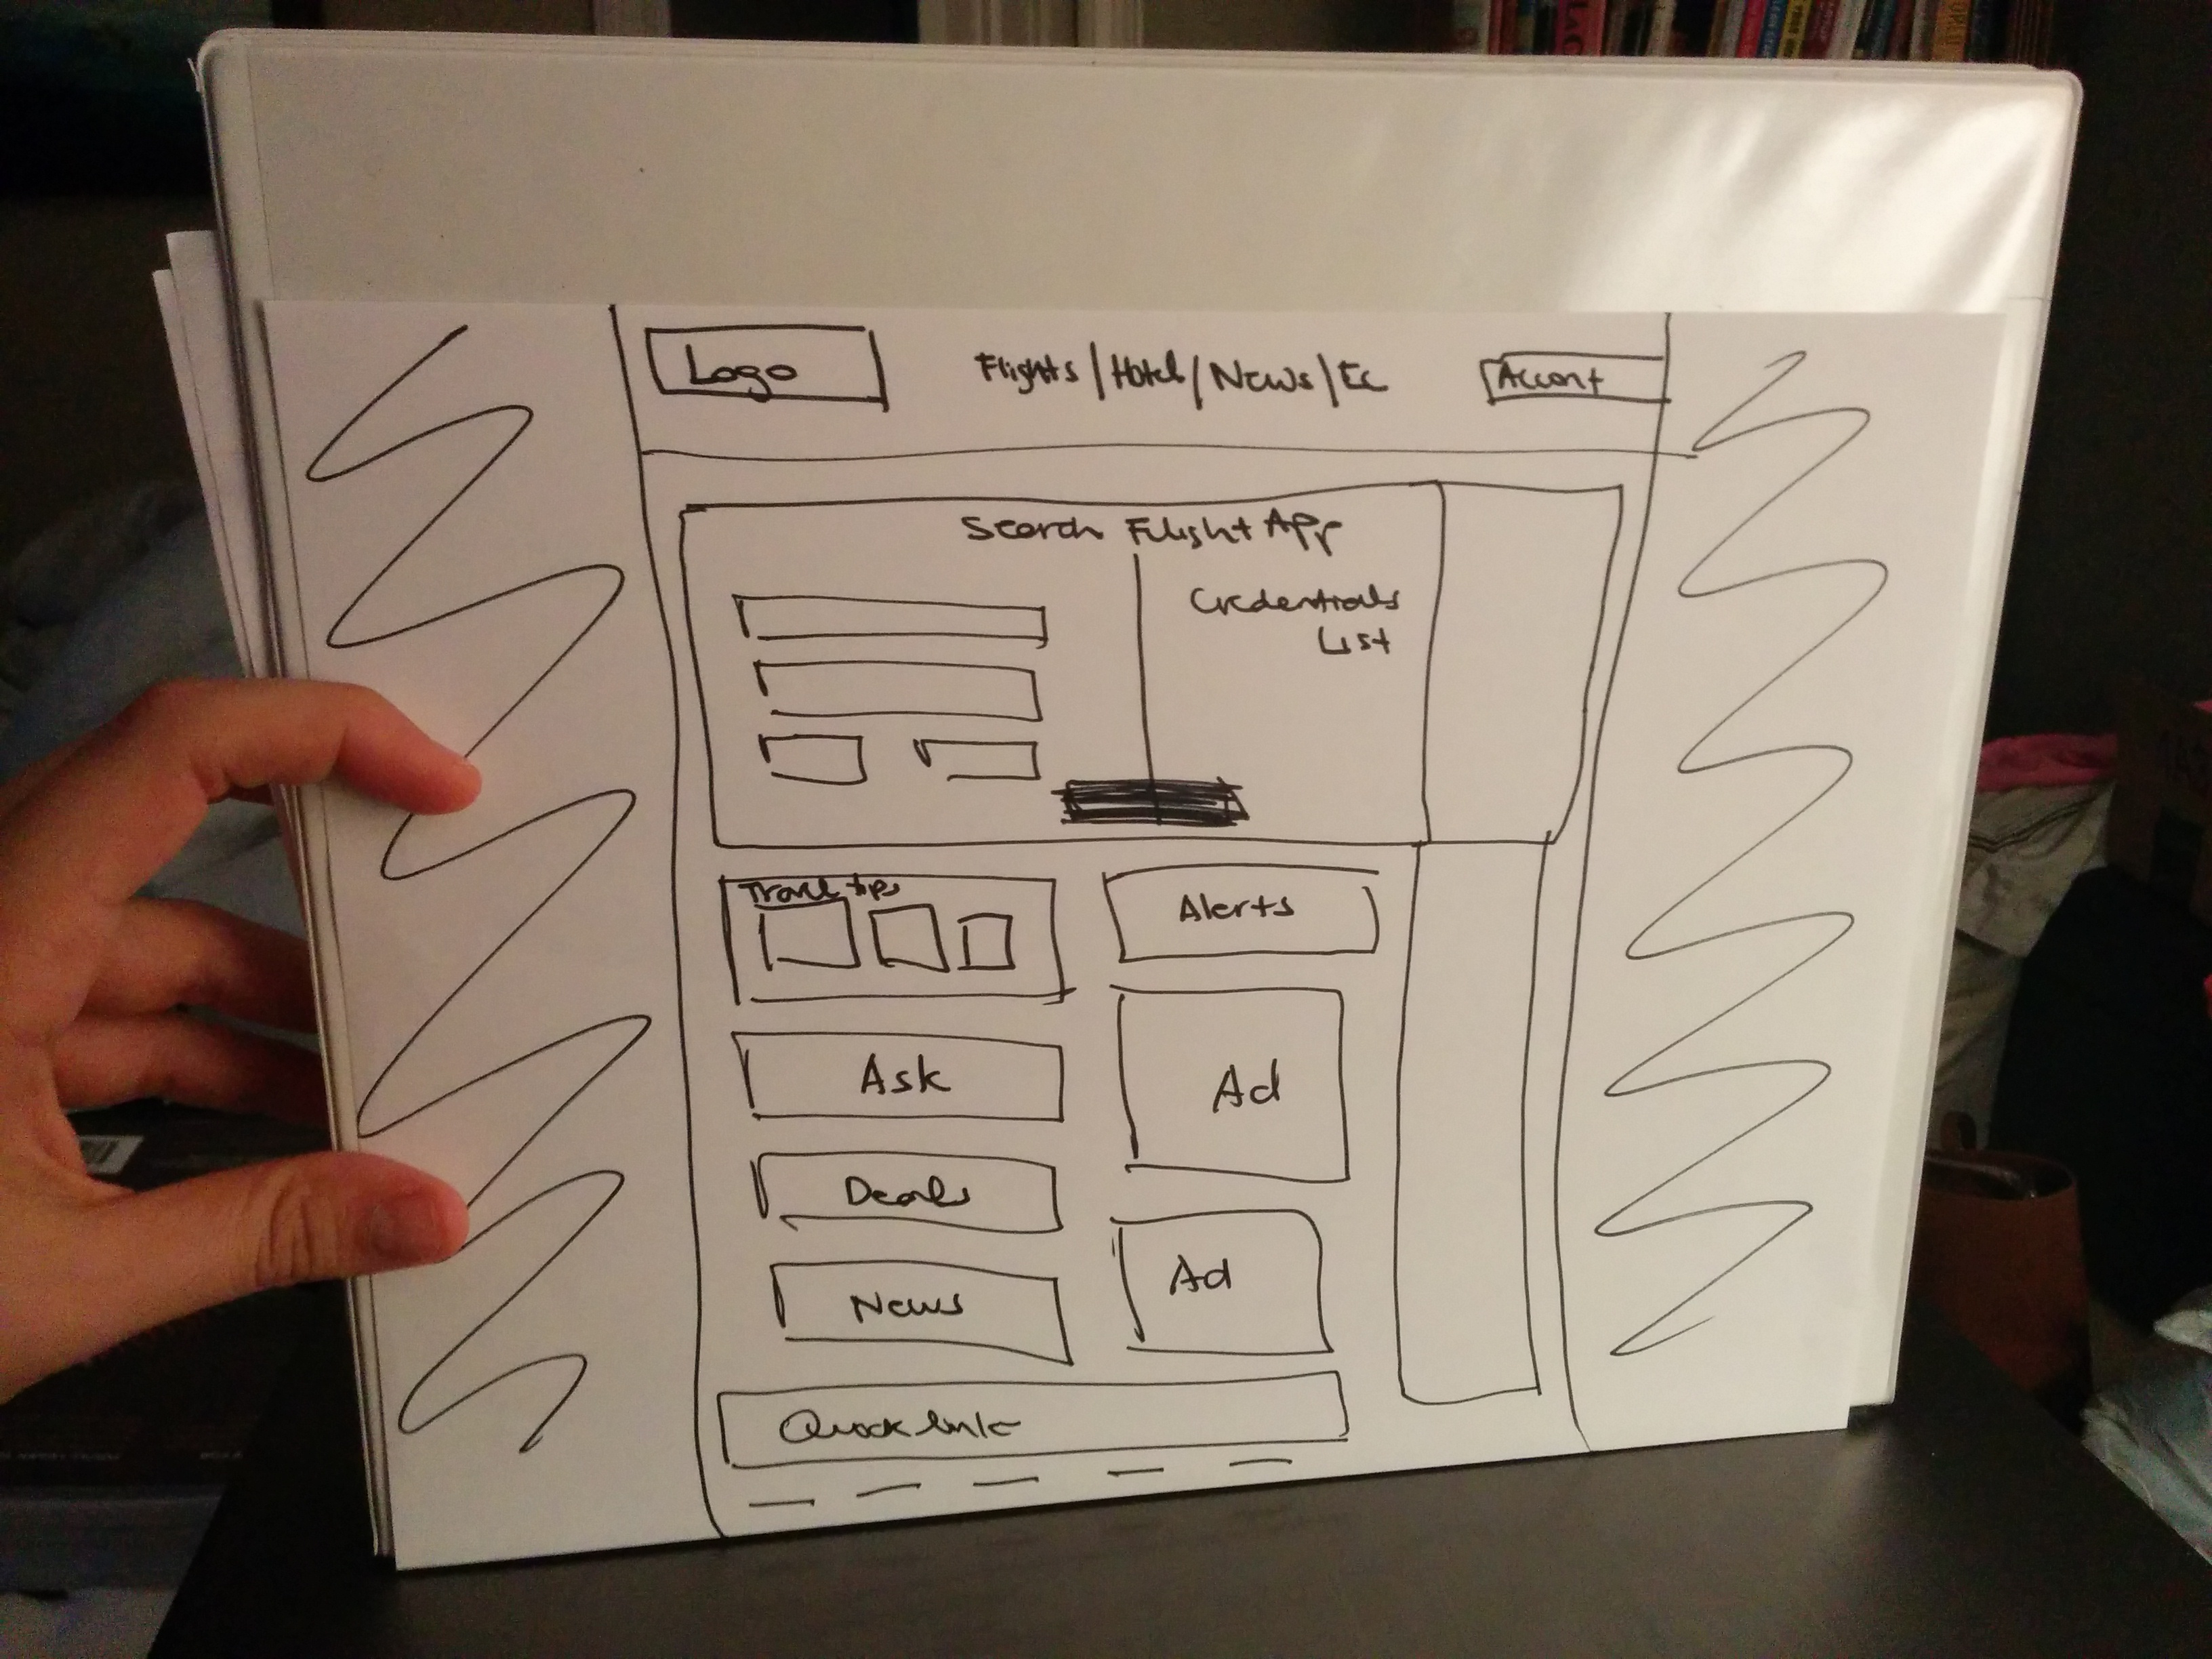 Logo
Flights / Hotel / News / Ec
Account
Search Flight App
Credentials
List
Travel tips
Alerts
Ask
Ad
Deals
Ad
News
Quick link